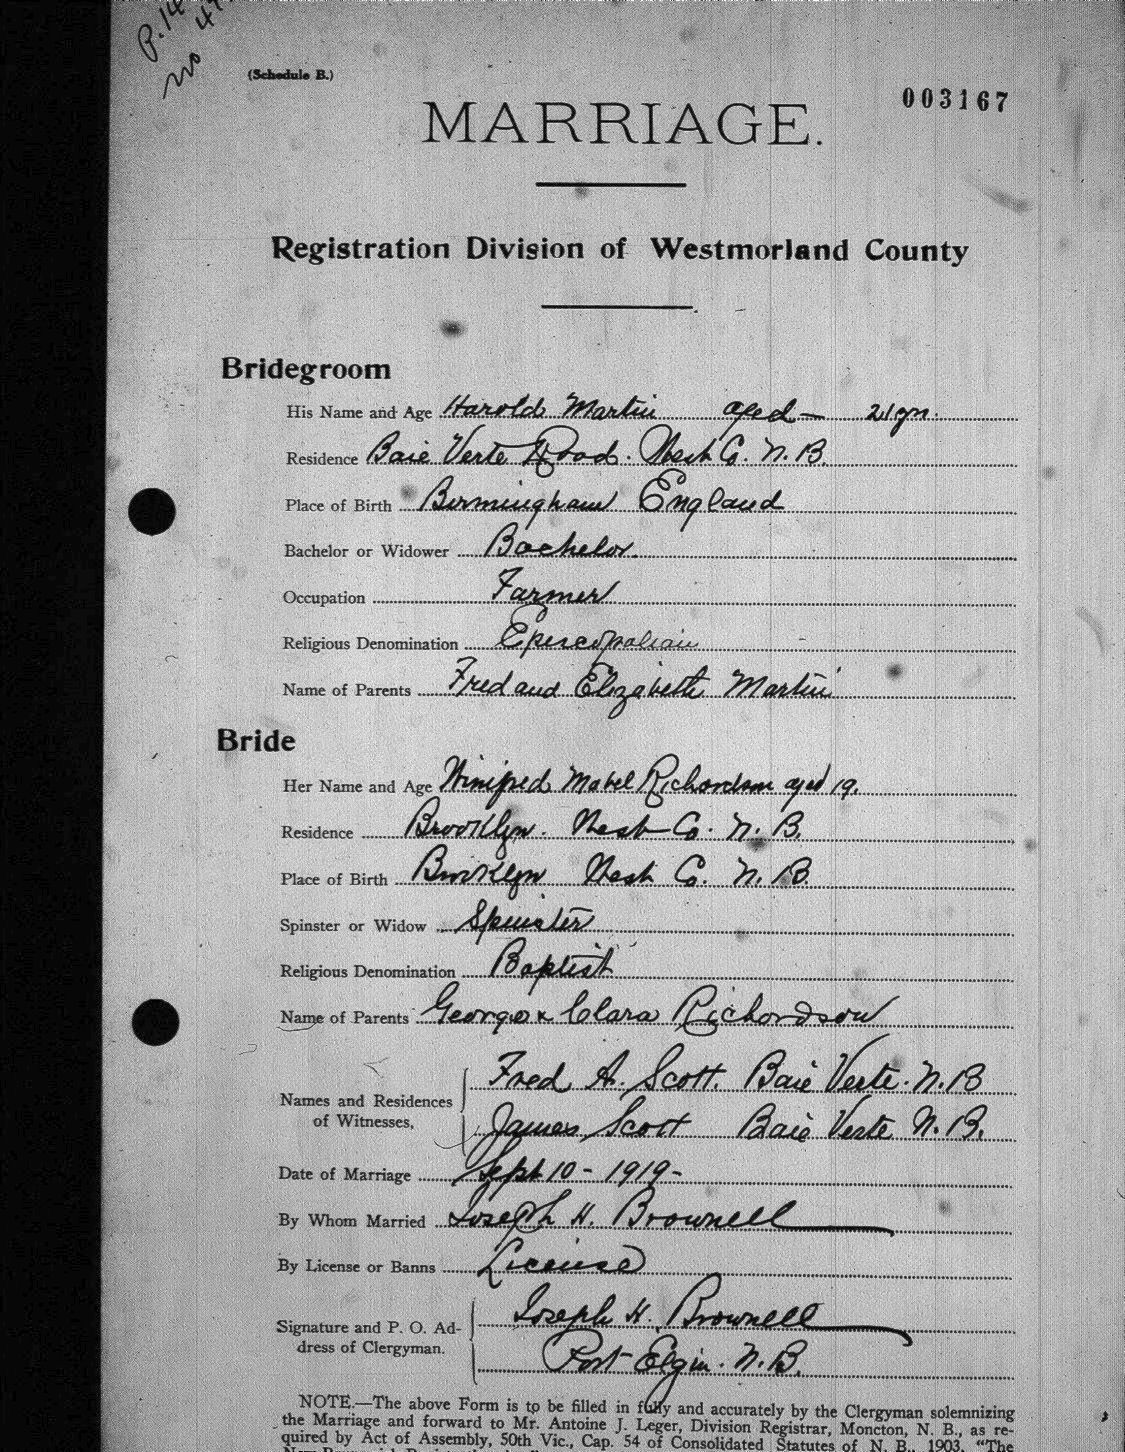 P. 14
no 47
(Schedule B.)
003167
MARRIAGE.
Registration Division of Westmorland County
Bridegroom
His Name and Age Harold Martin aged — 21 yrs.
Residence Baie Verte Road. West Co. N. B.
Place of Birth Birmingham England
Bachelor or Widower Bachelor.
Occupation Farmer
Religious Denomination Episcopalian
Name of Parents Fred and Elizabeth Martin
Bride
Her Name and Age Winifred Mabel Richardson aged 19.
Residence Brooklyn. West Co. N. B.
Place of Birth Brooklyn West Co. N. B.
Spinster or Widow Spinster
Religious Denomination Baptist
Name of Parents George & Clara Richardson
Names and Residences of Witnesses,
Fred A. Scott. Baie Verte. N. B
James Scott Baie Verte N. B.
Date of Marriage Sept 10 - 1919 -
By Whom Married Joseph H. Brownell
By License or Banns License
Signature and P. O. Ad-
dress of Clergyman.
Joseph H. Brownell
Port Elgin. N. B.
NOTE.—The above Form is to be filled in fully and accurately by the Clergyman solemnizing
the Marriage and forward to Mr. Antoine J. Leger, Division Registrar, Moncton, N. B., as re-
quired by Act of Assembly, 50th Vic., Cap. 54 of Consolidated Statutes of N. B., 1903. "The